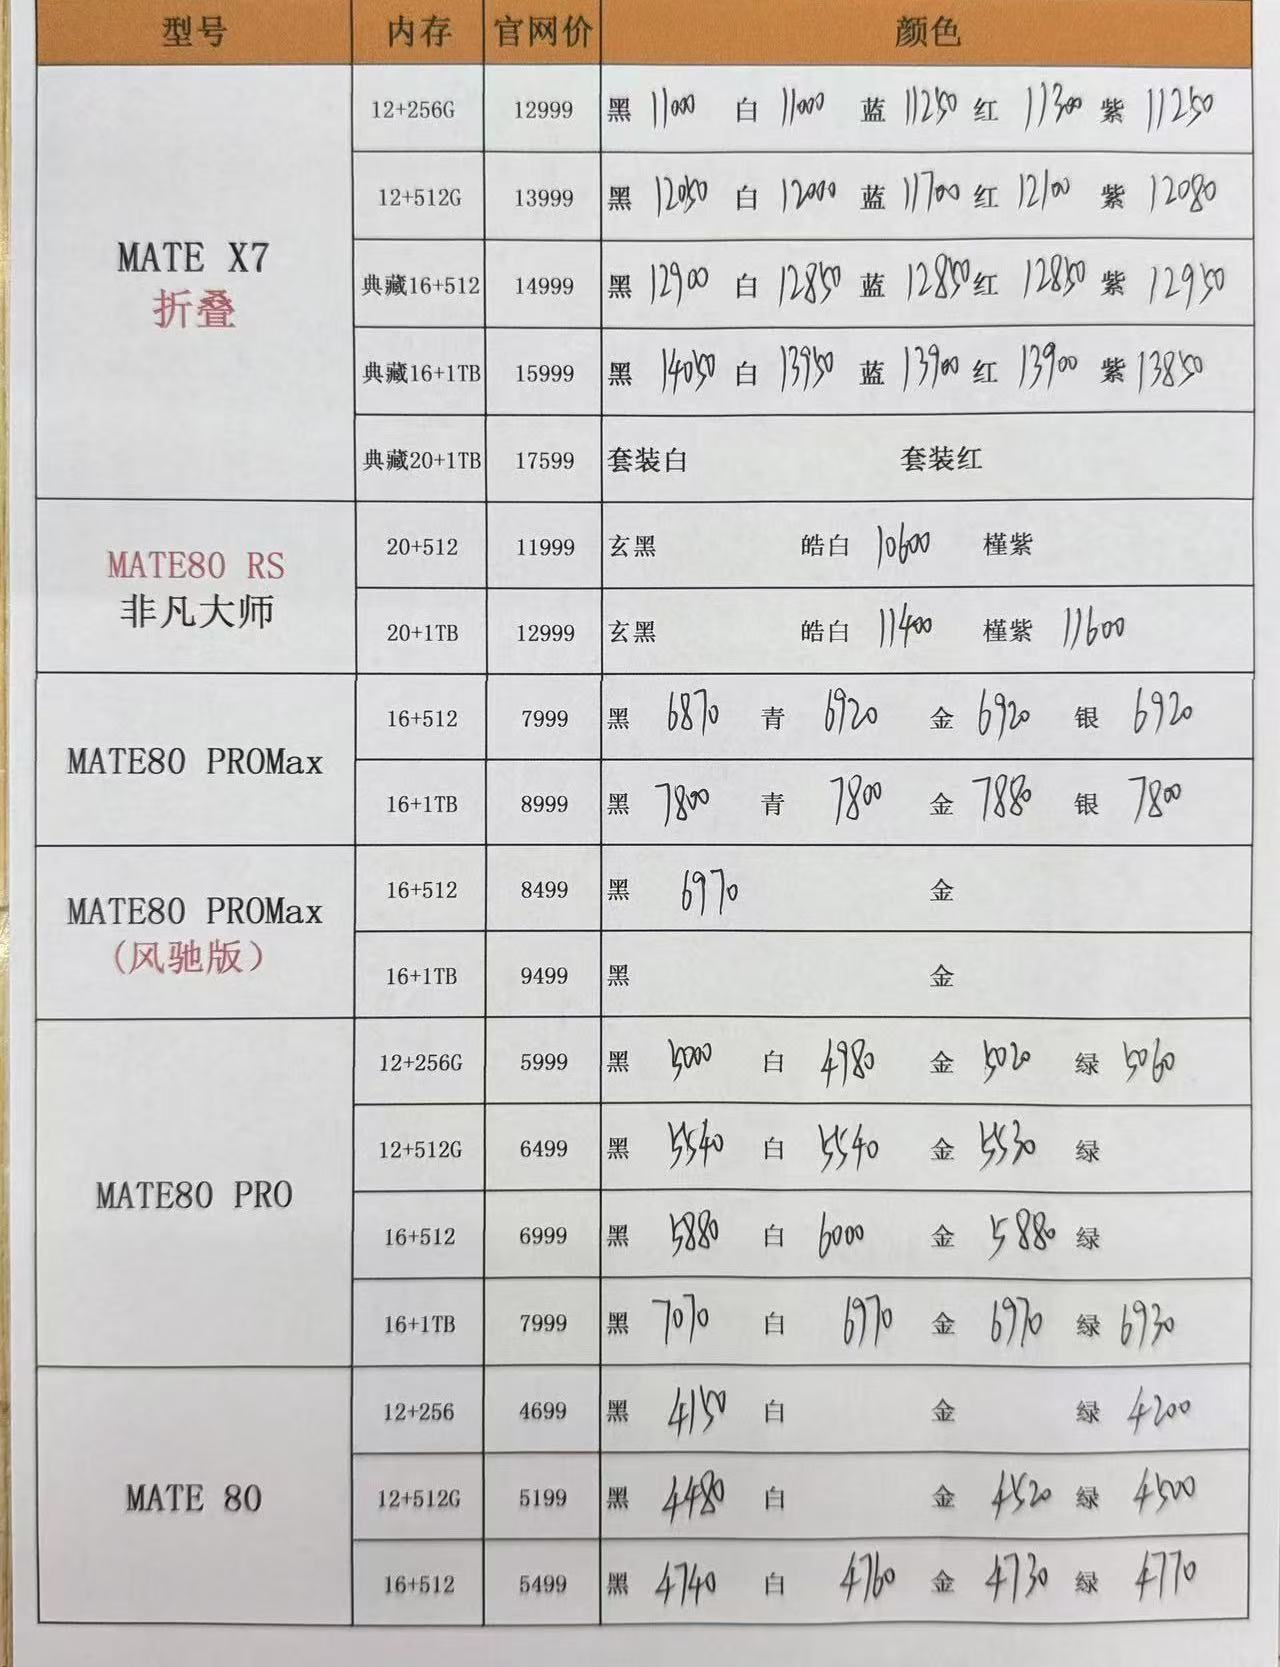 型号 内存 官网价 颜色
12+256G 12999 黑 11000 白 11000 蓝 11250 红 11300 紫 11250
12+512G 13999 黑 12050 白 12000 蓝 11700 红 12100 紫 12080
MATE X7
折叠
典藏16+512 14999 黑 12900 白 12850 蓝 12850 红 12850 紫 12950
典藏16+1TB 15999 黑 14050 白 13950 蓝 13900 红 13900 紫 13850
典藏20+1TB 17599 套装白 套装红
MATE80 RS
非凡大师
20+512 11999 玄黑 皓白 10600 槿紫
20+1TB 12999 玄黑 皓白 11400 槿紫 11600
MATE80 PROMax
16+512 7999 黑 6870 青 6920 金 6920 银 6920
16+1TB 8999 黑 7800 青 7800 金 7880 银 7800
MATE80 PROMax
(风驰版)
16+512 8499 黑 6970 金
16+1TB 9499 黑 金
MATE80 PRO
12+256G 5999 黑 5000 白 4980 金 5020 绿 5060
12+512G 6499 黑 5540 白 5540 金 5530 绿
16+512 6999 黑 5880 白 6000 金 5880 绿
16+1TB 7999 黑 7070 白 6970 金 6970 绿 6930
MATE 80
12+256 4699 黑 4150 白 金 绿 4200
12+512G 5199 黑 4480 白 金 4520 绿 4500
16+512 5499 黑 4740 白 4760 金 4730 绿 4770